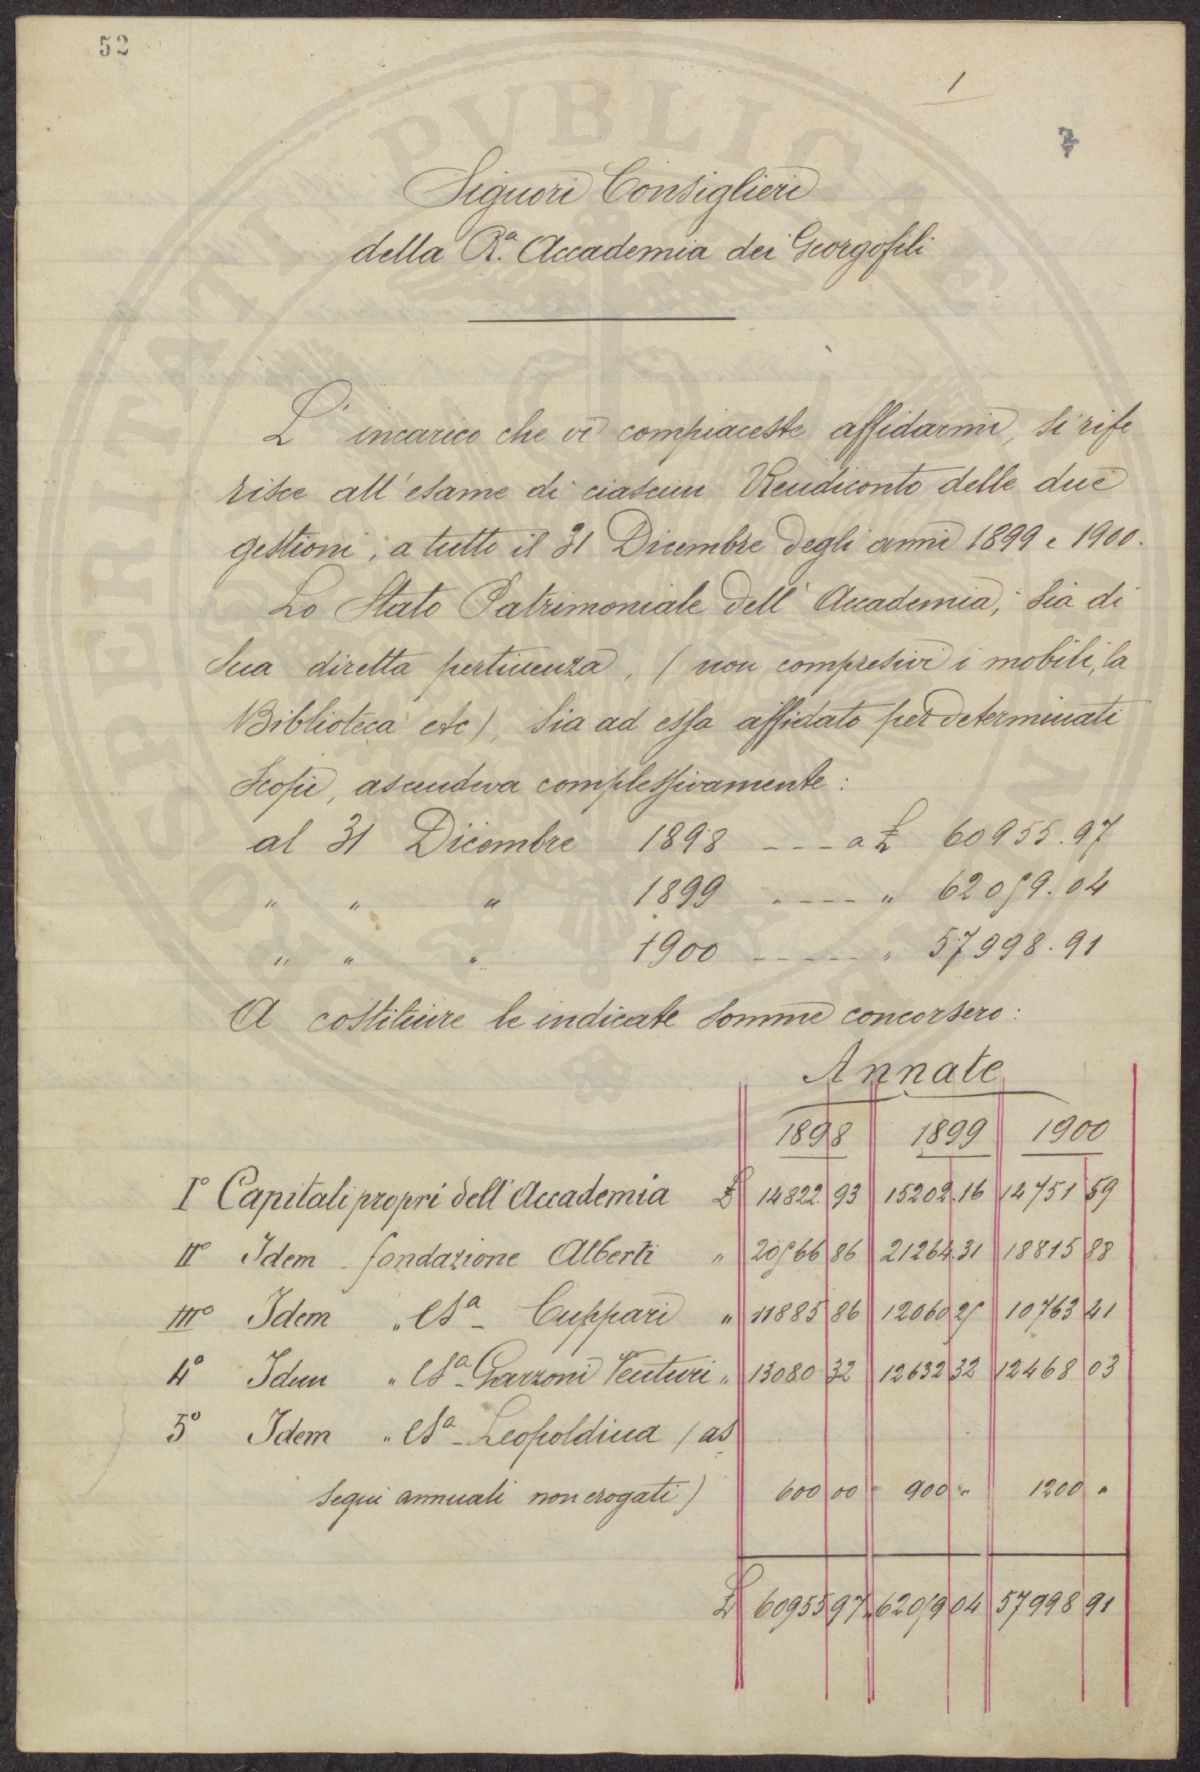 52
1
7
Signori Consiglieri
della R.ª Accademia dei Georgofili
L'incarico che vi compiaceste affidarmi, si rife
risce all'esame di ciascun Rendiconto delle due
gestioni, a tutto il 31 Dicembre degli anni 1899 e 1900.
Lo Stato Patrimoniale dell'Accademia, sia di
sua diretta pertinenza, (non compresivi i mobili, la
Biblioteca etc), sia ad essa affidato per determinati
scopi, ascendeva complessivamente:
al 31 Dicembre 1898 ---- a £ 60955.97
" " " 1899 " ---- " 62059.04
" " " 1900 ----- " 57998.91
A costituire le indicate somme concorsero:
Annate
1898 1899 1900
Iº Capitali propri dell'Accademia £ 14822.93 15202.16 14751 59
IIº Idem - fondazione Alberti " 20566 86 21264.31 18815 88
IIIº Idem " Cª - Cuppari " 11885 86 12060 25 10763 41
4º Idem " Cª - Garzoni Venturi " 13080 32 12632 32 12468 03
5º Idem " Cª - Leopoldina (as
segni annuali non erogati) 600 00 900 " 1200 "
£ 60955 97 62059 04 57998 91
PROSPERITATI PVBLICAE AVGENDAE